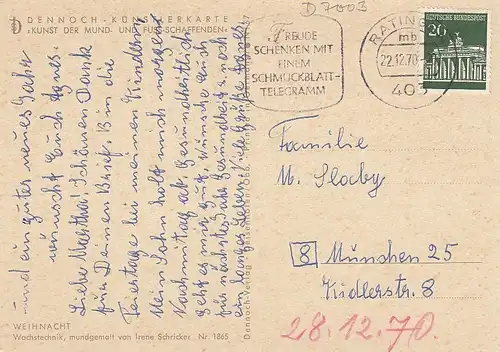 D 7003
DENNOCH - KÜNSTLERKARTE
»KUNST DER MUND- UND FUSS-SCHAFFENDEN«
und ein gutes neues Jahr
wünscht Euch Agnes.
Liebe Martha! Schönen Dank
für Deinen Brief. Bin die
Feiertage bei meinen Kindern,
Mein Sohn holt mich morgen
Nachmittag ab. Gesundheitlich
geht es mir gut, wünsche euch
fürs nächste Jahr Gesundheit u. noch
ein langes Leben. Viele Grüße Agnes
WEIHNACHT
Wachstechnik, mundgemalt von Irene Schricker Nr. 1865
FREUDE
SCHENKEN MIT
EINEM
SCHMUCKBLATT-
TELEGRAMM
RATINGEN
mb
22.12.70
403
DEUTSCHE BUNDESPOST
20
Familie
M. Sloby
8 München 25
Kidlerstr. 8
28.12.70.